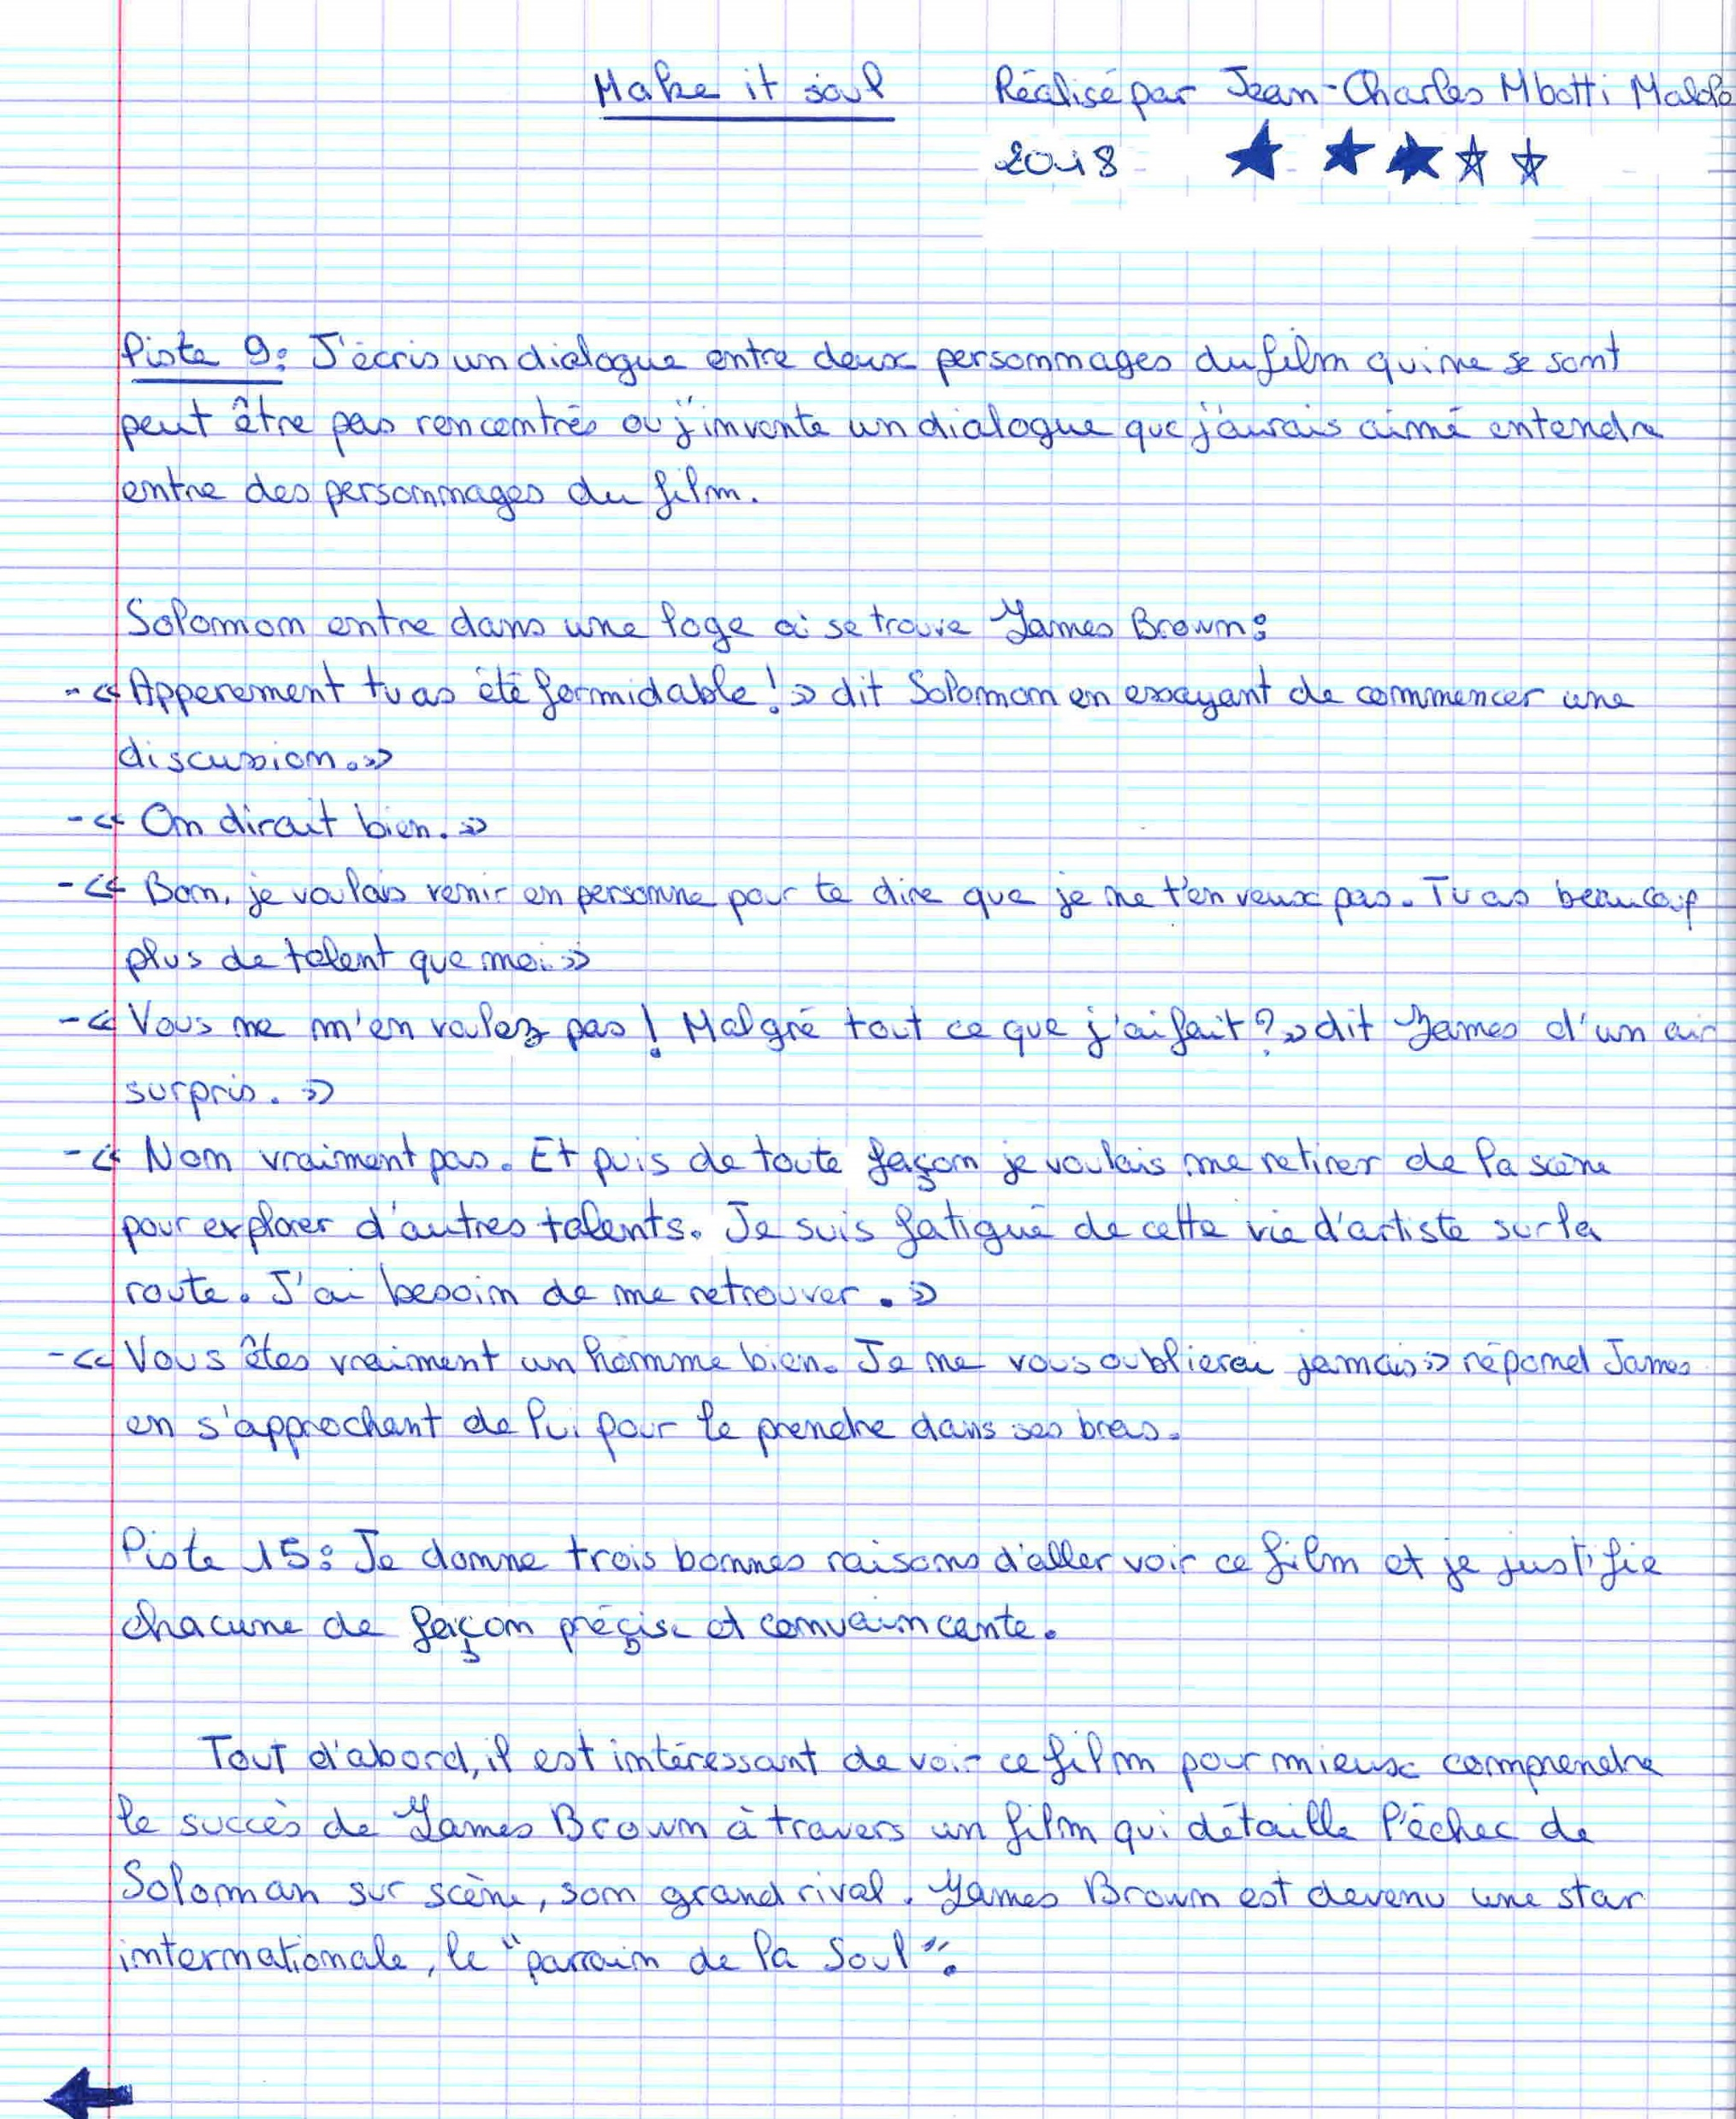 Make it soul Réalisé par Jean-Charles Mbotti Malolo
2018
Piste 9: J'écris un dialogue entre deux personnages du film qui ne se sont
peut être pas rencontrés ou j'invente un dialogue que j'aurais aimé entendre
entre des personnages du film.
Solomon entre dans une loge où se trouve James Brown:
-« Apperement tu as été formidable! » dit Solomon en essayant de commencer une
discussion.»
-« On dirait bien. »
-« Bon, je voulais venir en personne pour te dire que je ne t'en veux pas. Tu as beaucoup
plus de talent que moi.»
-« Vous ne m'en voulez pas! Malgré tout ce que j'ai fait?» dit James d'un air
surpris. »
-« Non vraiment pas. Et puis de toute façon je voulais me retirer de la scène
pour explorer d'autres talents. Je suis fatigué de cette vie d'artiste sur la
route. J'ai besoin de me retrouver. »
-« Vous êtes vraiment un homme bien. Je ne vous oublierai jamais» répond James
en s'approchant de lui pour le prendre dans ses bras.
Piste 15: Je donne trois bonnes raisons d'aller voir ce film et je justifie
chacune de façon préçise et convaincante.
Tout d'abord, il est intéressant de voir ce film pour mieux comprendre
le succès de James Brown à travers un film qui détaille l'échec de
Soloman sur scène, son grand rival. James Brown est devenu une star
internationale, le "parrain de la Soul".